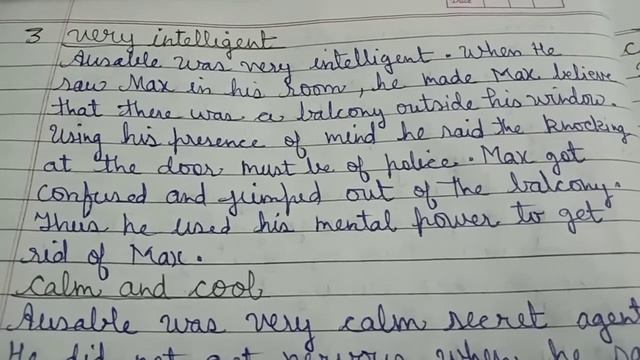 3 very intelligent
Ausable was very intelligent. When He
saw Max in his room, he made Max believe
that there was a balcony outside his window.
Using his presence of mind he said the knocking
at the door must be of police. Max got
confused and jumped out of the balcony.
Thus he used his mental power to get
rid of Max.
calm and cool
Ausable was very calm secret agent
He did not get nervous when he